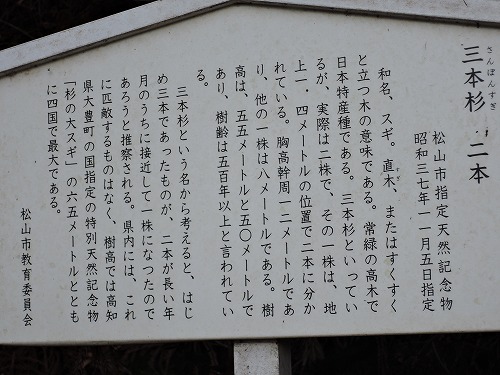 さんぼんすぎ
三本杉 二本
松山市指定天然記念物
昭和三七年一一月五日指定
すぎ
和名、スギ。直木、またはすくすく
と立つ木の意味である。常緑の高木で
日本特産種である。三本杉といってい
るが、実際は二株で、その一株は、地
上一．四メートルの位置で二本に分か
れている。胸高幹周一二メートルであ
り、他の一株は八メートルである。樹
高は、五五メートルと五〇メートルで
あり、樹齢は五百年以上と言われてい
る。
三本杉という名から考えると、はじ
め三本であったものが、二本が長い年
月のうちに接近して一株になつたので
あろうと推察される。県内には、これ
に匹敵するものはなく、樹高では高知
県大豊町の国指定の特別天然記念物
「杉の大スギ」の六五メートルととも
に四国で最大である。
松山市教育委員会